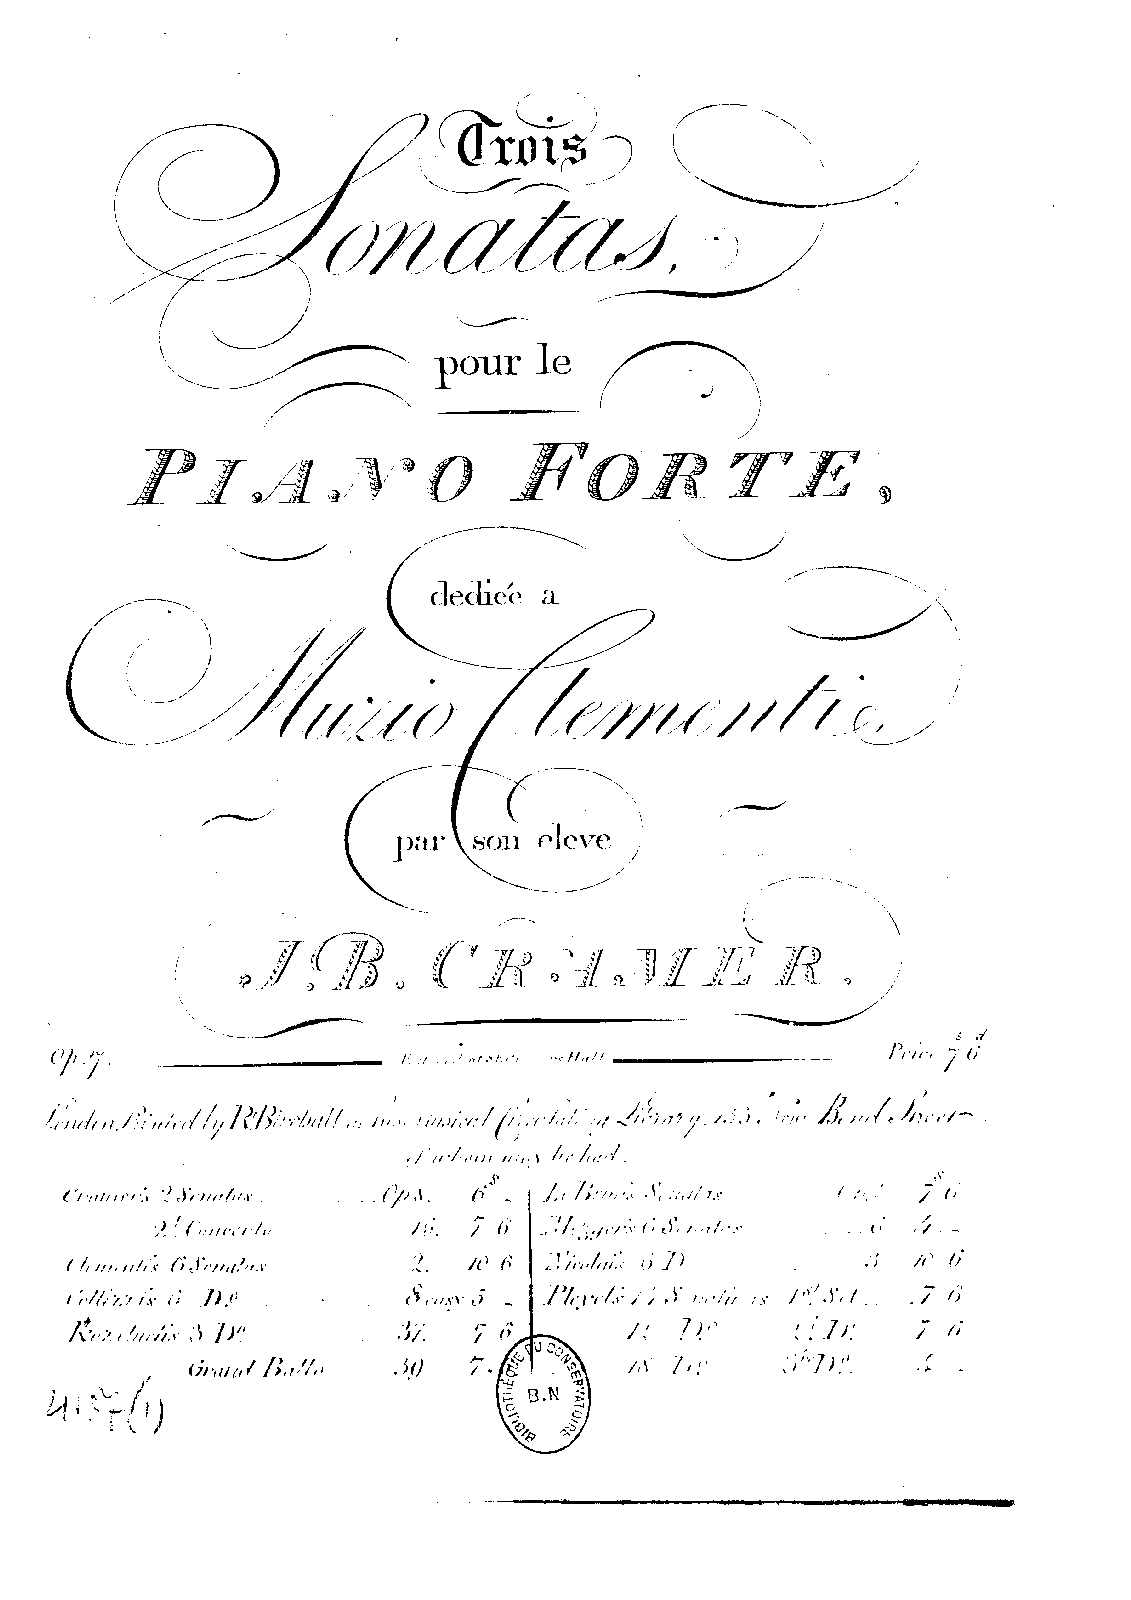 Trois
Sonatas,
pour le
PIANO FORTE,
dediée a
Muzio Clementi
par son eleve
J. B. CRAMER.
Op. 7. Hall Price 7 6
s d
London Printed by R. Birchall at his musical Circulating Library, 133 New Bond Street
of whom may be had.
Cramer's 2 Sonatas Op 8. 6s -
2d Concerto 16. 7 6
Clementi's 6 Sonatas 2. 10 6
6 Do 8 easy 5 -
Kozeluch's 3 Do 37. 7 6
Grand Battle 39 7
Sonatas 7s 6
6 Sonatas 6 4 -
Nicolai's 6 D 3 10 6
Pleyel's 1st Set 7 6
12 Do 2d Do 7 6
18 Do 3d Do 4 -
BIBLIOTHÈQUE DU CONSERVATOIRE
B.N
(1)